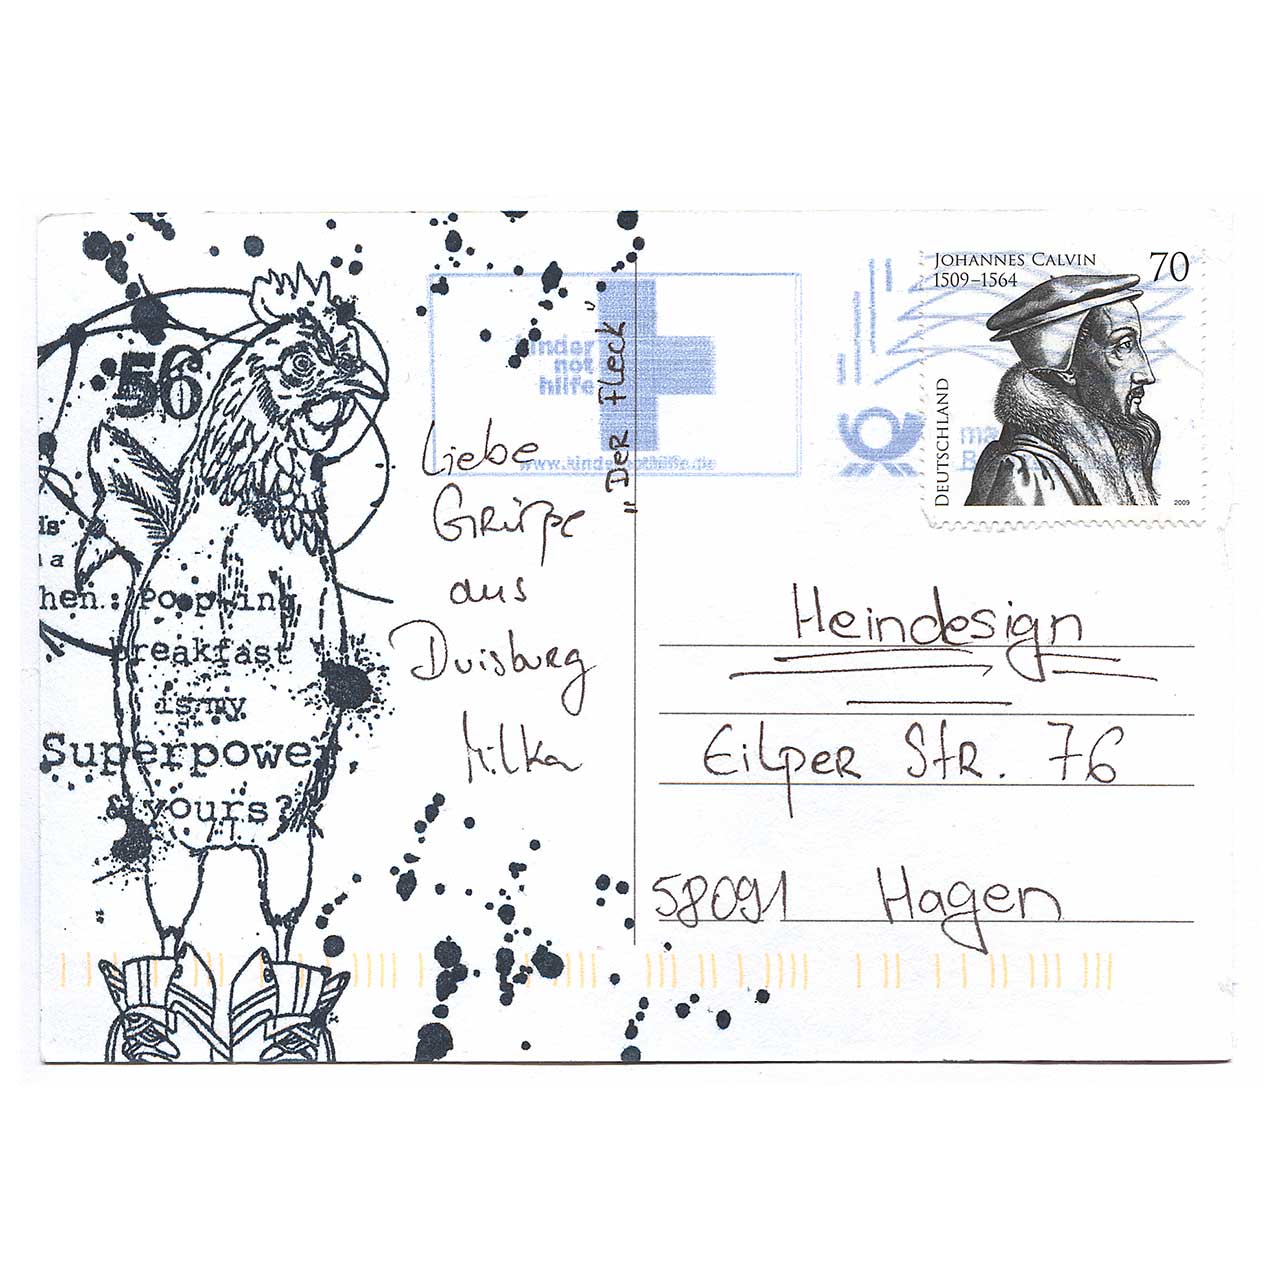 56
ds
a
hen: Pooping
breakfast
is my
Superpower
& yours?
kinder
not
hilfe
www.kindernothilfe.de
"Der Fleck"
Liebe
Grüße
aus
Duisburg
Milka
JOHANNES CALVIN
1509–1564
70
DEUTSCHLAND
2009
Heindesign
Eilper Str. 76
58091 Hagen